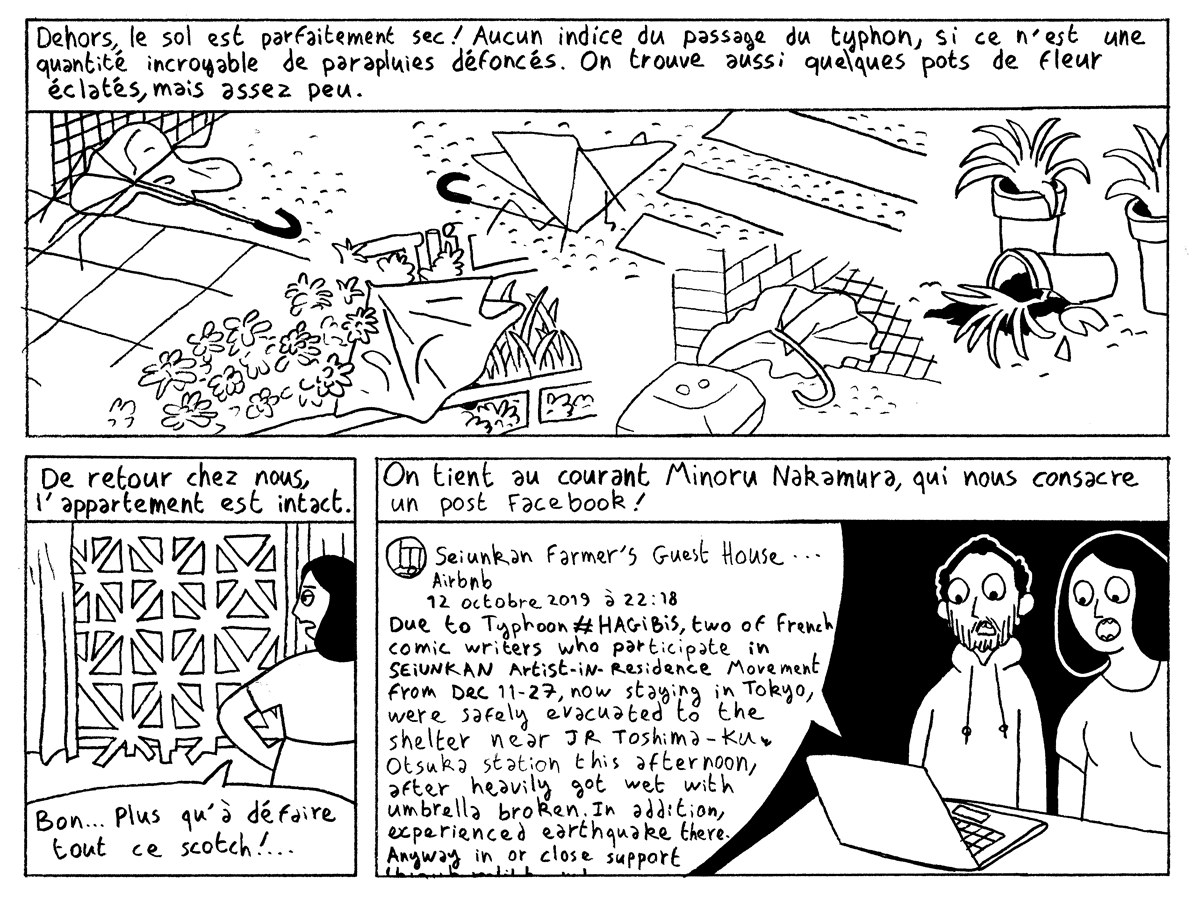 Dehors, le sol est parfaitement sec! Aucun indice du passage du typhon, si ce n'est une
quantité incroyable de parapluies défoncés. On trouve aussi quelques pots de fleur
éclatés, mais assez peu.
De retour chez nous,
l'appartement est intact.
Bon... Plus qu'à défaire
tout ce scotch!...
On tient au courant Minoru Nakamura, qui nous consacre
un post Facebook!
Seiunkan Farmer's Guest House ...
Airbnb
12 octobre 2019 à 22:18
Due to Typhoon #HAGiBiS, two of French
comic writers who participate in
SEiUNKAN Artist-in-Residence Movement
from Dec 11-27, now staying in Tokyo,
were safely evacuated to the
shelter near JR Toshima-Ku,
Otsuka station this afternoon,
after heavily got wet with
umbrella broken. In addition,
experienced earthquake there.
Anyway in or close support